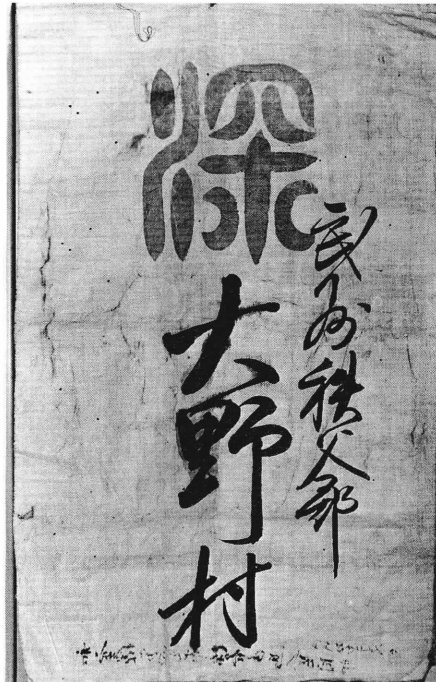 深
武州秩父郡
大野村